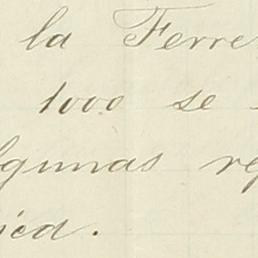 la Ferre
1000 se
lgunas re
ica.